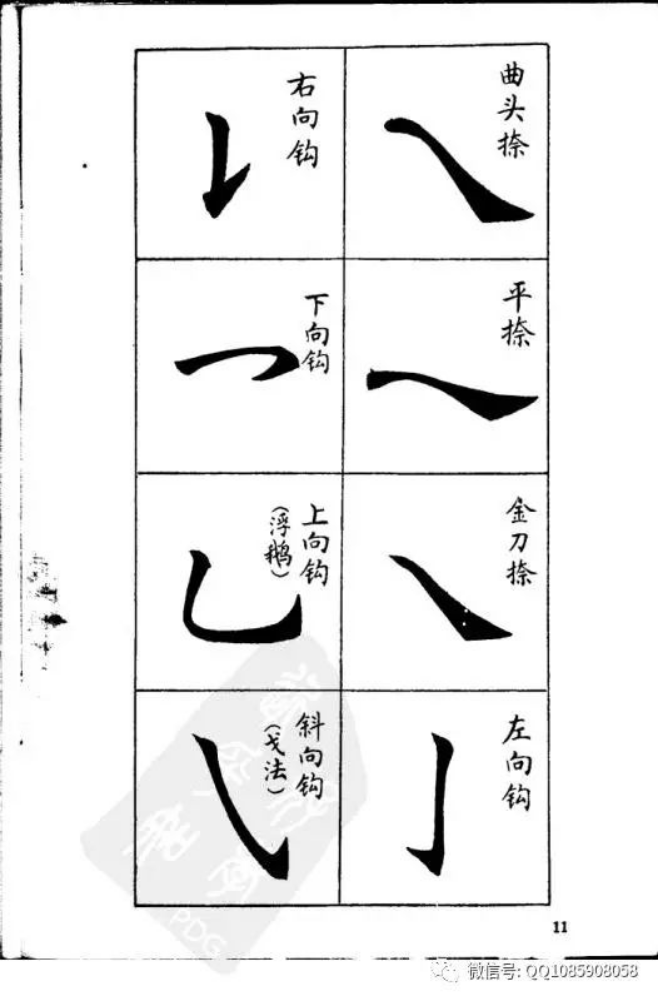 曲头捺
平捺
金刀捺
左向钩
右向钩
下向钩
上向钩
(浮鹅)
斜向钩
(戈法)
PDG
11
微信号: QQ1085908058